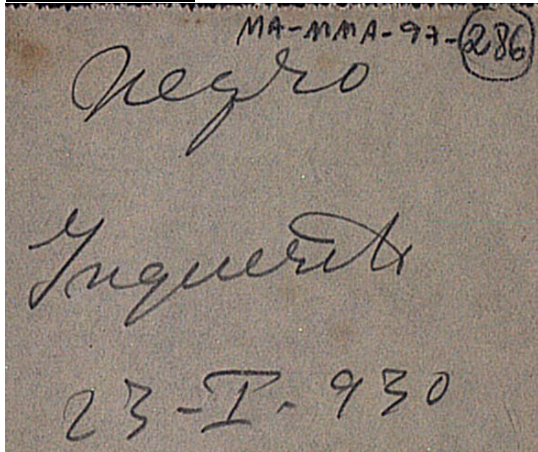 MA-MMA-97-286
negro
Inquerito
23-I-930